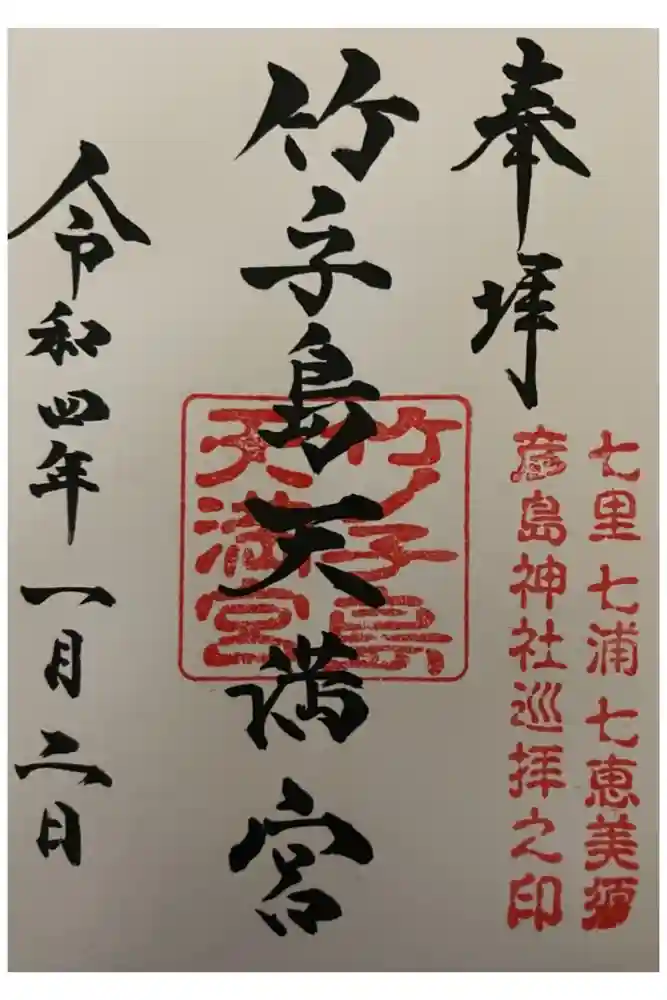 奉拝
七里七浦七恵美須
彦島神社巡拝之印
竹子島天満宮
竹ノ子島
天満宮
令和四年一月二日